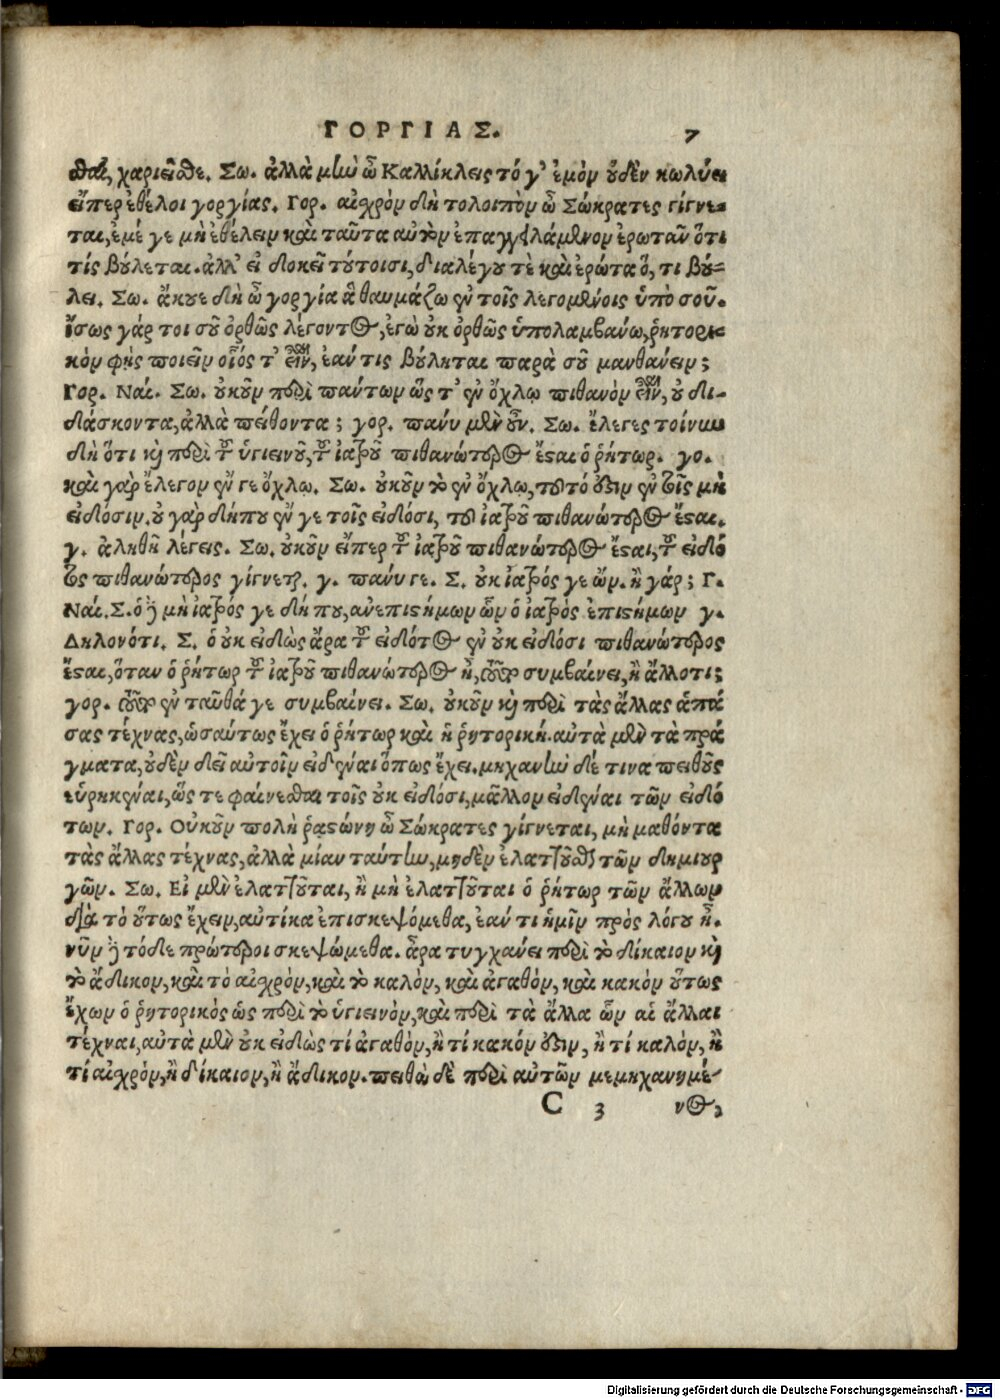 ΓΟΡΓΙΑΣ. 7
σθαι, χαριεῖσθε. Σω. ἀλλὰ μὴν ὦ Καλλίκλεις τό γ' ἐμὸν οὐδὲν κωλύει
εἴπερ ἐθέλοι γοργίας. Γορ. αἰσχρὸν δὴ τολοιπὸν ὦ Σώκρατες γίγνε-
ται, ἐμέ γε μὴ ἐθέλειν καὶ ταῦτα αὐτὸν ἐπαγγειλάμενον ἐρωτᾶν ὅτι
τίς βούλεται. ἀλλ' εἰ δοκεῖ τούτοισι, διαλέγου τὲ καὶ ἐρώτα ὅ, τι βού-
λει. Σω. ἄκουε δὴ ὦ γοργία ἃ θαυμάζω ἐν τοῖς λεγομένοις ὑπὸ σοῦ.
ἴσως γάρ τοι σοῦ ὀρθῶς λέγοντος, ἐγὼ οὐκ ὀρθῶς ὑπολαμβανω, ῥητορι-
κὸν φῂς ποιεῖν οἷός τ' εἶναι, ἐαν τις βούληται παρὰ σοῦ μανθάνειν;
Γορ. Ναί. Σω. οὐκοῦν περὶ παντων ὥς τ' ἐν ὄχλῳ πιθανὸν εἶναι, οὐ δι-
δάσκοντα, ἀλλὰ πείθοντα; γορ. πανυ μὲν οὖν. Σω. ἔλεγες τοίνυν
δὴ ὅτι καὶ περὶ τοῦ ὑγιεινοῦ, τοῦ ἰατροῦ πιθανώτερος ἔσται ὁ ῥήτωρ. γο.
καὶ γὰρ ἔλεγον ἔν γε ὄχλῳ. Σω. οὐκοῦν τὸ ἐν ὄχλῳ, τοῦτό ἐστιν ἐν τοῖς μὴ
εἰδόσιν. οὐ γὰρ δήπου ἔν γε τοῖς εἰδόσι, τοῦ ἰατροῦ πιθανώτερος ἔσται.
γ. ἀληθῆ λέγεις. Σω. οὐκοῦν εἴπερ τοῦ ἰατροῦ πιθανώτερος ἔσται, τοῦ εἰδό
τος πιθανώτερος γίγνεται. γ. πανυ γε. Σ. οὐκ ἰατρός γε ὤν. ἢ γάρ; Γ.
Ναί. Σ. ὁ δὲ μὴ ἰατρός γε δήπου, ἀνεπιστήμων ὧν ὁ ἰατρὸς ἐπιστήμων γ.
Δηλονότι. Σ. ὁ οὐκ εἰδὼς ἄρα τοῦ εἰδότος ἐν οὐκ εἰδόσι πιθανώτερος
ἔσται, ὅταν ὁ ῥήτωρ τοῦ ἰατροῦ πιθανώτερος ᾖ, τοῦτο συμβαίνει, ἢ ἄλλοτι;
γορ. τοῦτο ἐν ταῦθά γε συμβαίνει. Σω. οὐκοῦν καὶ περὶ τὰς ἄλλας ἁπά
σας τέχνας, ὡσαύτως ἔχει ὁ ῥήτωρ καὶ ἡ ῥητορική. αὐτὰ μὲν τὰ πρά
γματα, οὐδὲν δεῖ αὐτοῖν εἰδέναι ὅπως ἔχει. μηχανὴν δέ τινα πειθοῦς
εὑρηκέναι, ὥς τε φαίνεσθαι τοῖς οὐκ εἰδόσι, μᾶλλον εἰδέναι τῶν εἰδό
των. Γορ. Οὐκοῦν πολὴ ῥαστώνη ὦ Σώκρατες γίγνεται, μὴ μαθόντα
τὰς ἄλλας τέχνας, ἀλλὰ μίαν ταύτην, μηδὲν ἐλαττοῦσθαι τῶν δημιουρ
γῶν. Σω. Εἰ μὲν ἐλαττοῦται, ἢ μὴ ἐλαττοῦται ὁ ῥήτωρ τῶν ἄλλων
διὰ τὸ οὕτως ἔχειν, αὐτίκα ἐπισκεψόμεθα, ἐαν τι ἡμῖν πρὸς λόγου ᾖ.
νῦν δὲ τόδε πρώτεροι σκεψώμεθα. ἆρα τυγχανει περὶ τὸ δίκαιον καὶ
τὸ ἄδικον, καὶ τὸ αἰσχρὸν, καὶ τὸ καλὸν, καὶ ἀγαθὸν, καὶ κακὸν οὕτως
ἔχων ὁ ῥητορικὸς ὡς περὶ τὸ ὑγιεινὸν, καὶ περὶ τὰ ἄλλα ὧν αἱ ἄλλαι
τέχναι, αὐτὰ μὲν οὐκ εἰδὼς τί ἀγαθὸν, ἢ τί κακόν ἐστιν, ἢ τί καλὸν, ἢ
τί αἰσχρὸν, ἢ δίκαιον, ἢ ἄδικον. πειθὼ δὲ περὶ αὐτῶν μεμηχανημέ-
C 3 νος,
Digitalisierung gefördert durch die Deutsche Forschungsgemeinschaft - DFG